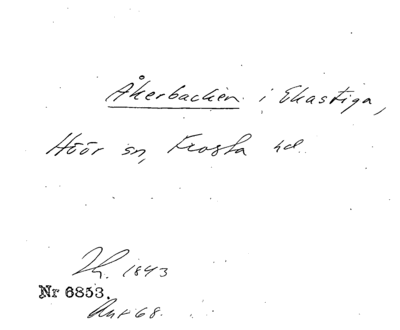 Åkerbacken i Ekastiga,
Höör sn, Frosta hd
Th. 1843
Nr 6853.
Ank 68.